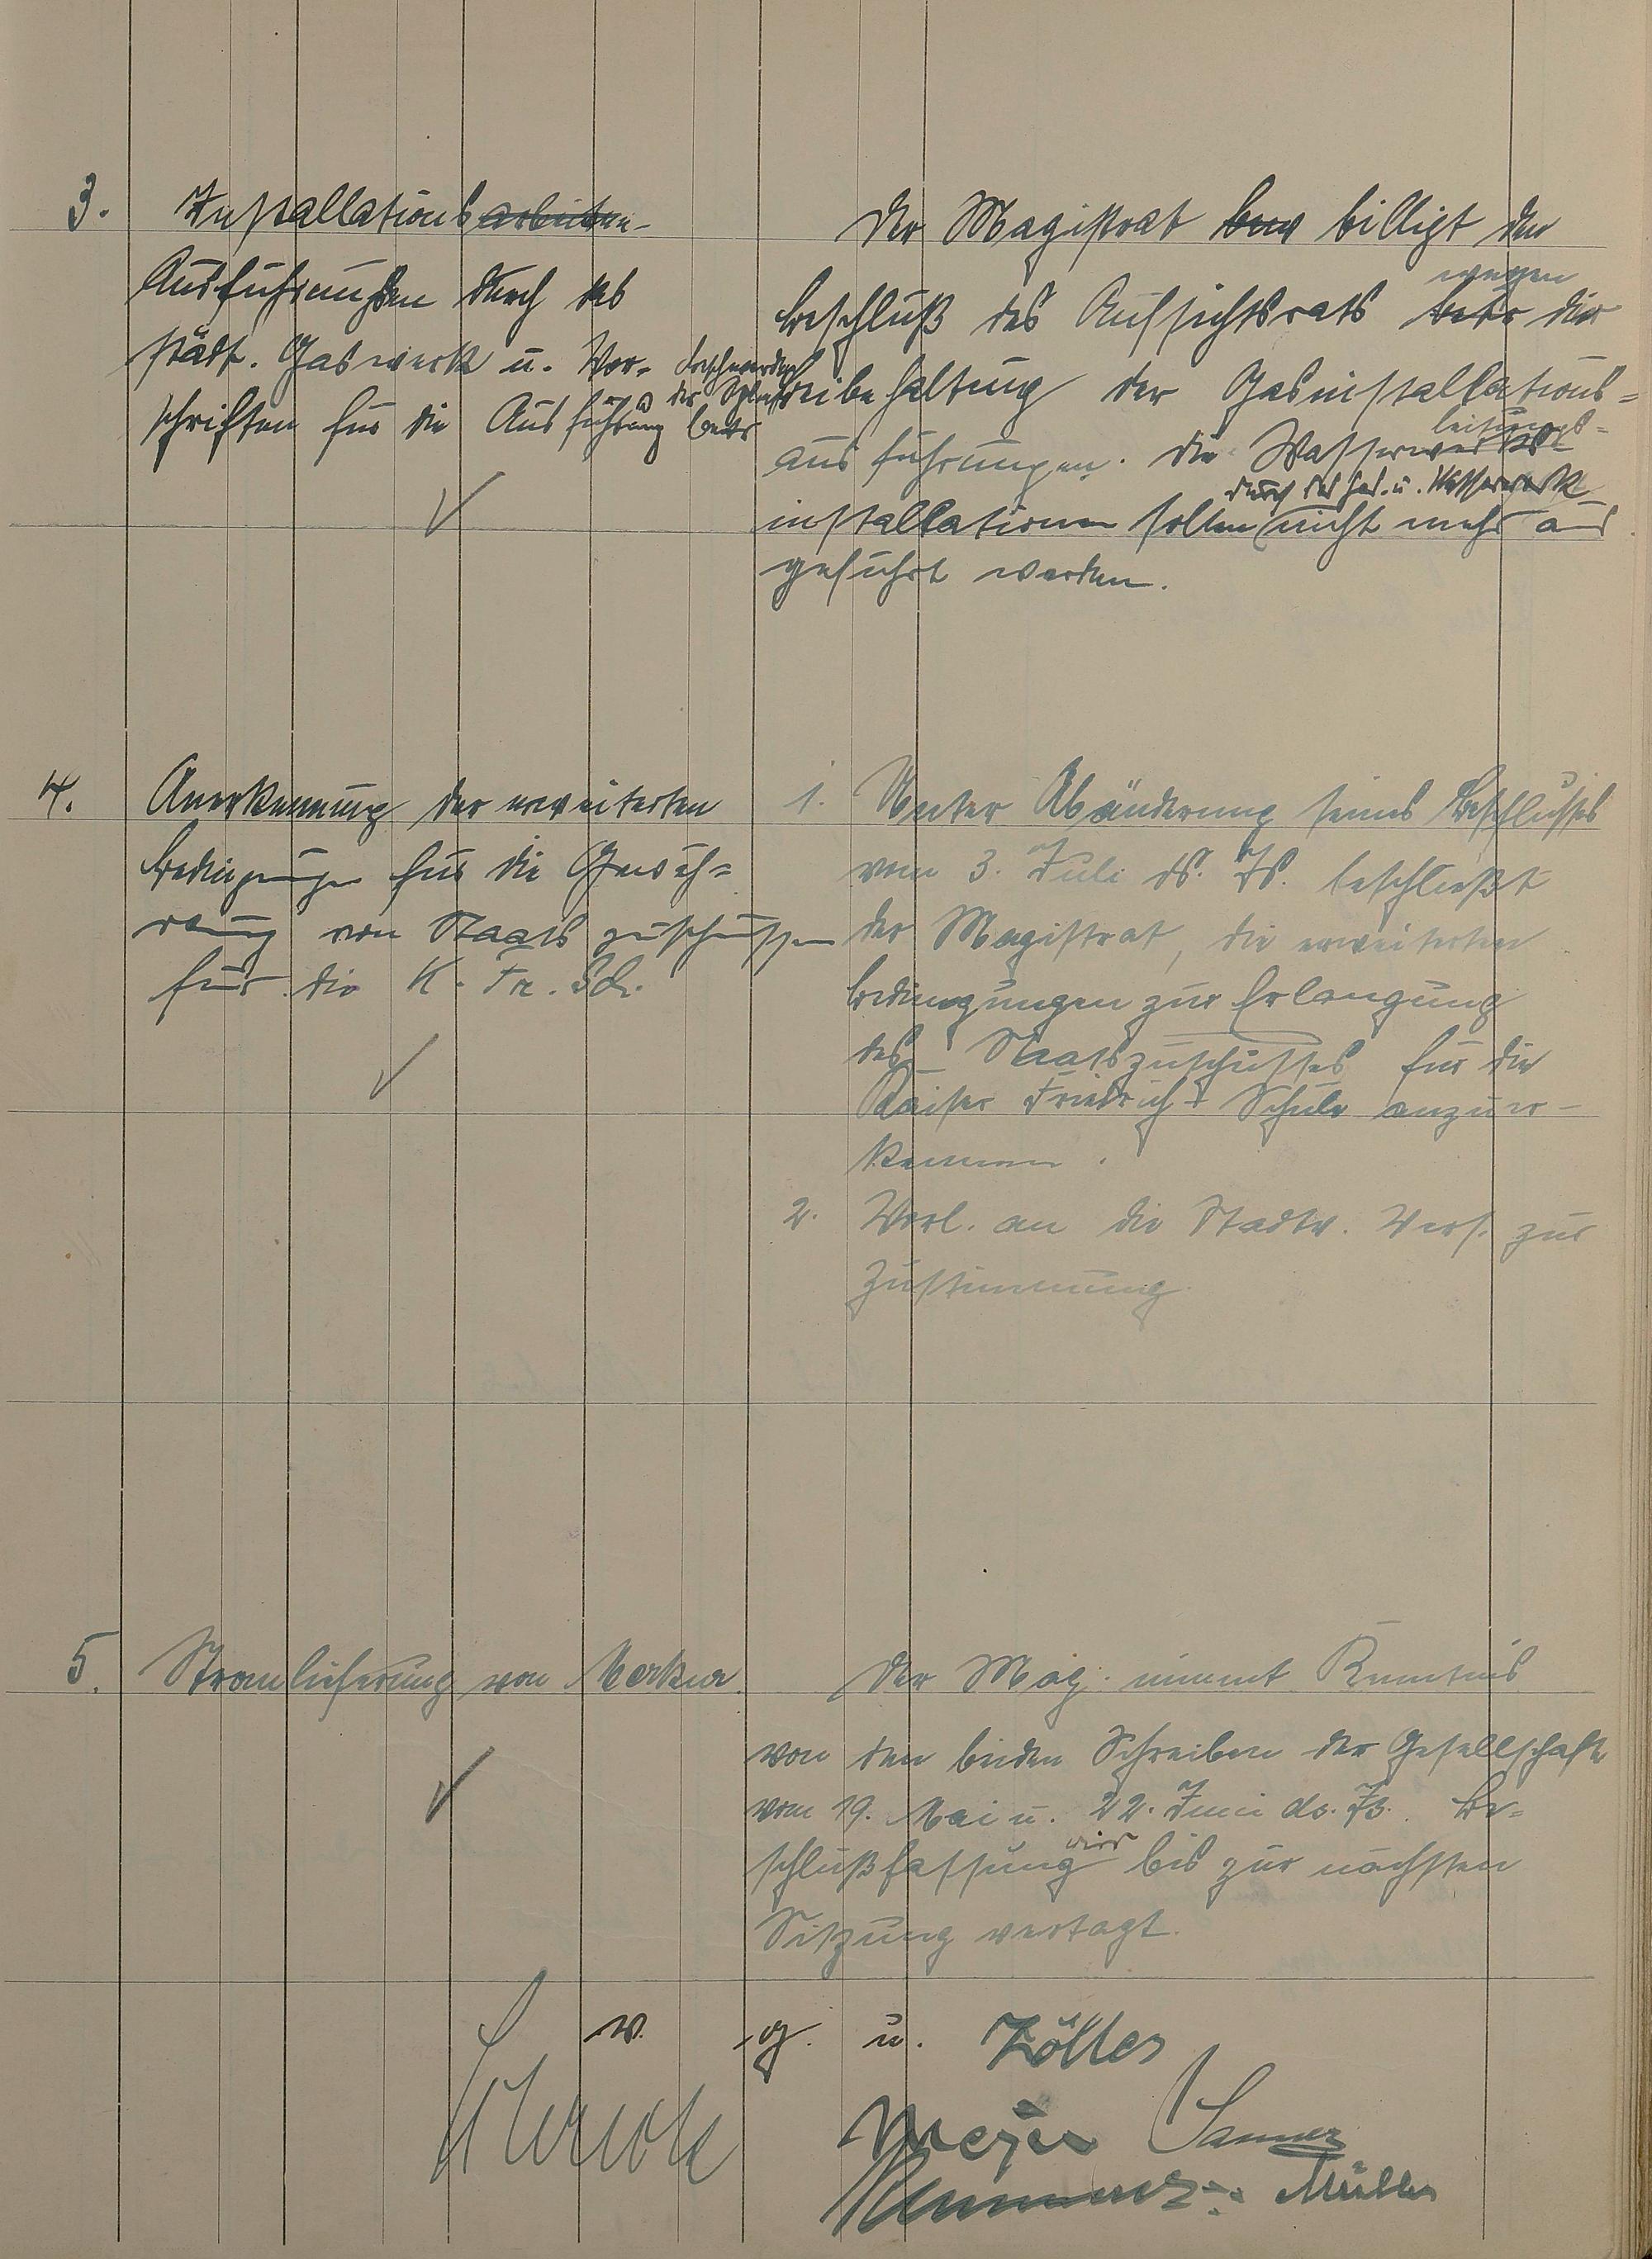 3.
Installationsarbeiten-
Ausführungen durch das
städt. Gaswerk u. Vor-
schriften für die Ausführung
Der Magistrat billigt den
wegen
Beschluß des Aufsichtsrats betr die
Beibehaltung der Gasinstallations=
leitungs=
ausführungen. Die Wasserwerks
durch das Gas- u. Wasserwerk
installationen sollen nicht mehr aus
geführt werden.
4.
Anerkennung der erweiterten
Bedingungen für die Gewäh=
rung von Staatszuschüssen
für die K. Fr. Sch.
1. Unter Abänderung seines Beschlusses
vom 3. Juli ds. Js. beschließt
der Magistrat, die erweiterten
Bedingungen zur Erlangung
des Staatszuschusses für die
Kaiser Friedrich-Schule anzuer-
kennen.
2. Vorl. an die Stadtv. Vers. zur
Zustimmung
5.
Stromlieferung von Merkur.
Der Mag. nimmt Kenntnis
von den beiden Schreiben der Gesellschaft
vom 19. Mai u. 22. Juni ds. Js. Be=
wird
schlußfassung bis zur nächsten
Sitzung vertagt.
v. g. u.
Zöller
Meyer
Müller